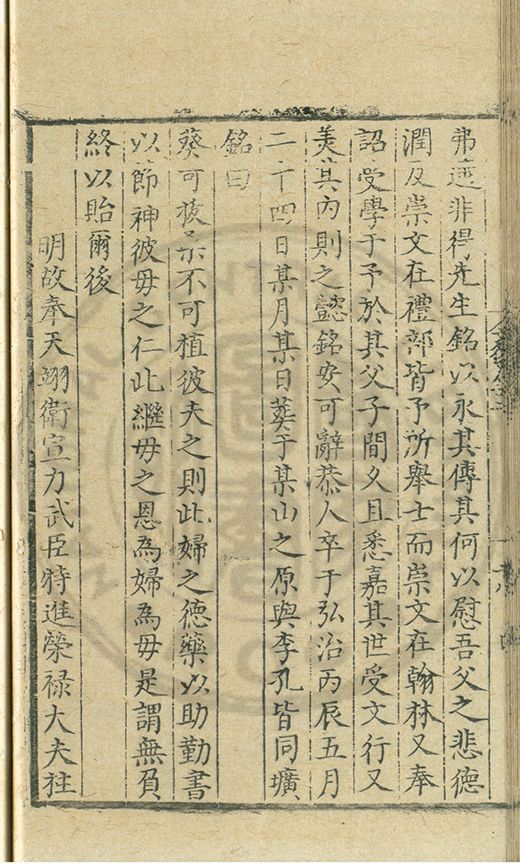 弗逮非得先生銘以永其傳其何以慰吾父之悲德
潤及崇文在禮部皆予所舉士而崇文在翰林又奉
詔受學于予於其父子間久且悉嘉其世受文行又
美其內則之懿銘安可辭恭人卒于弘治丙辰五月
二十四日某月某日葬于某山之原與李孔皆同壙
銘曰
葵可拔桑不可植彼夫之則此婦之德藥以助勤書
以節神彼母之仁此繼母之恩為婦為母是謂無負
終以貽爾後
明故奉天翊衛宣力武臣特進榮祿大夫柱